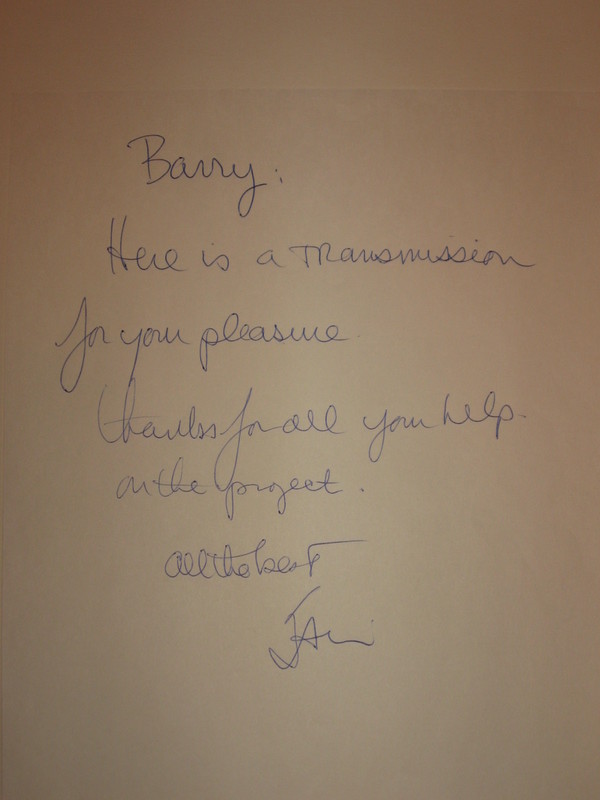 Barry:
Here is a transmission
for your pleasure
thanks for all your help.
on the project.
all the best